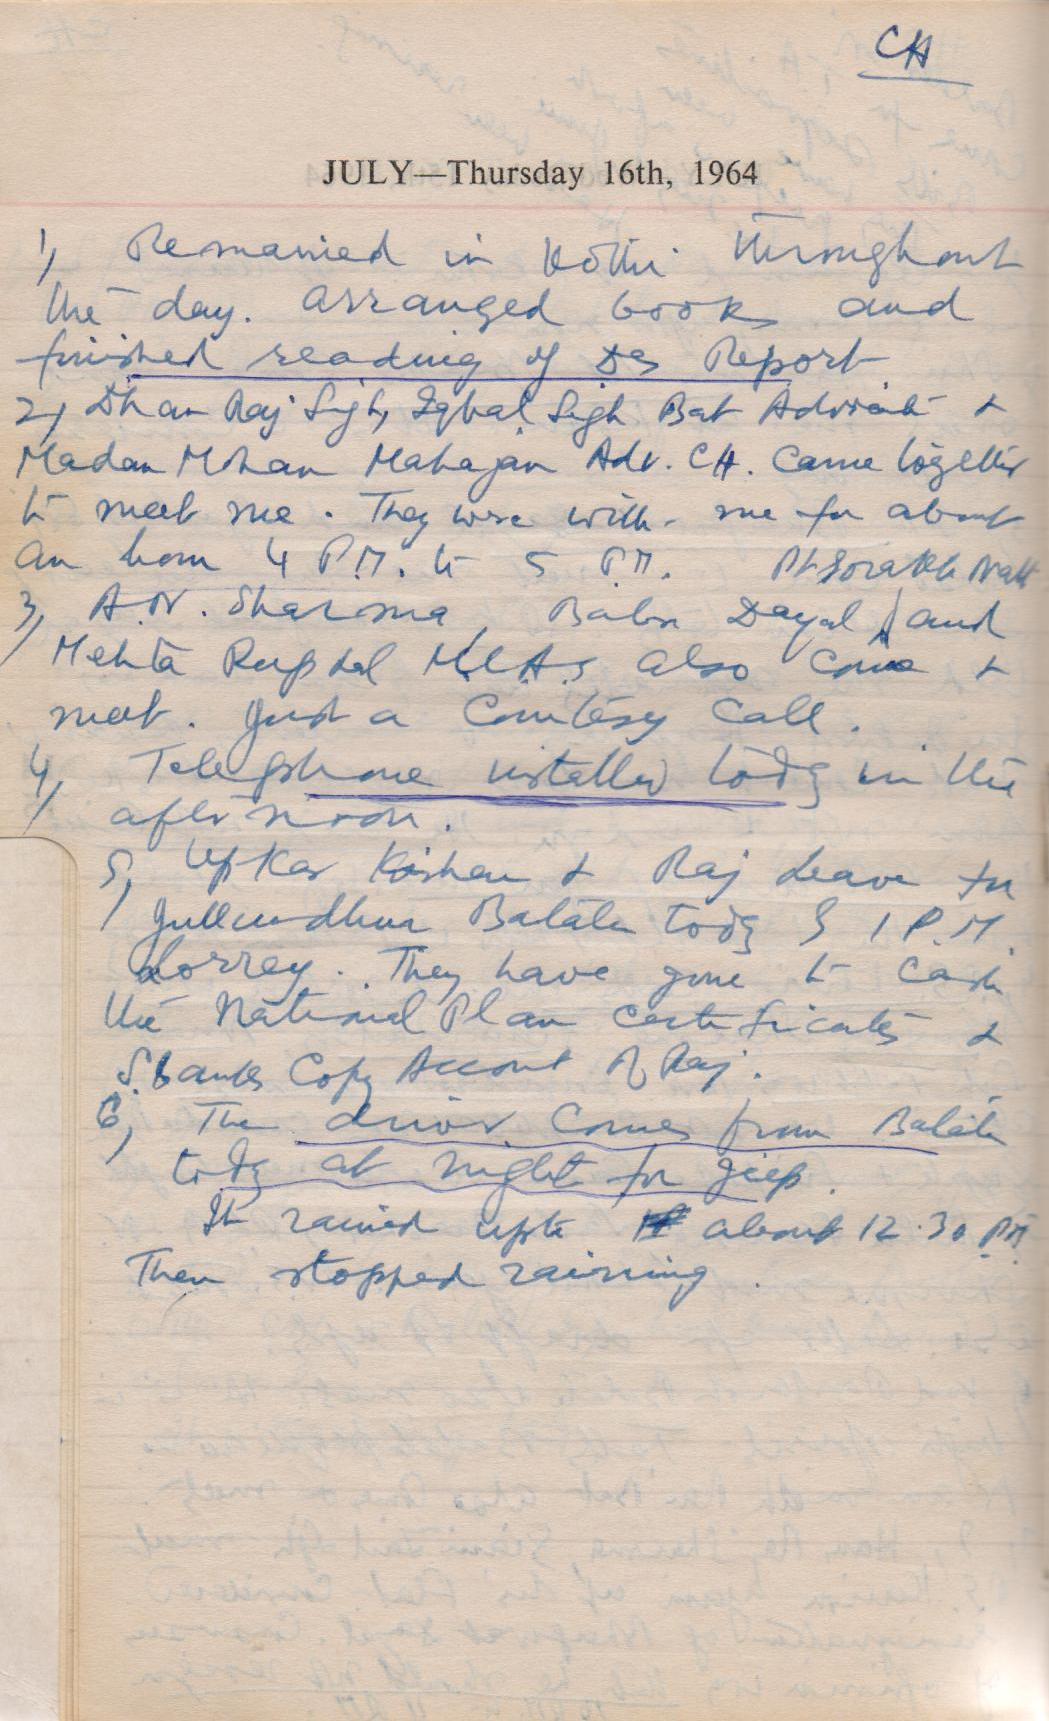 CH
JULY—Thursday 16th, 1964
1, Remained in Kothi throughout
the day. arranged books and
finished reading of Das Report
2, Dhan Raj Singh, Iqbal Singh Bat Advocate &
Madan Mohan Mahajan Adv. CH. came together
to meet me. They were with me for about
an hour 4 P.M. to 5 P.M.
Pt Gorakh Nath
3, A.N. Sharma, Babu Dayal and
Mehta Rup Lal M.L.A.s also come &
meet. Just a Courtesy Call.
4, Telephone installed today in the
afternoon.
5, Upkar Kishan & Raj leave for
Jullundhur Batala today 1 P.M.
Lorrey. They have gone to cash
the National Plan certificates &
S. banks Copy Account of Raj.
6, The driver comes from Batala
today at night for jeep.
It rained upto about 12.30 PM
Then stopped raining.